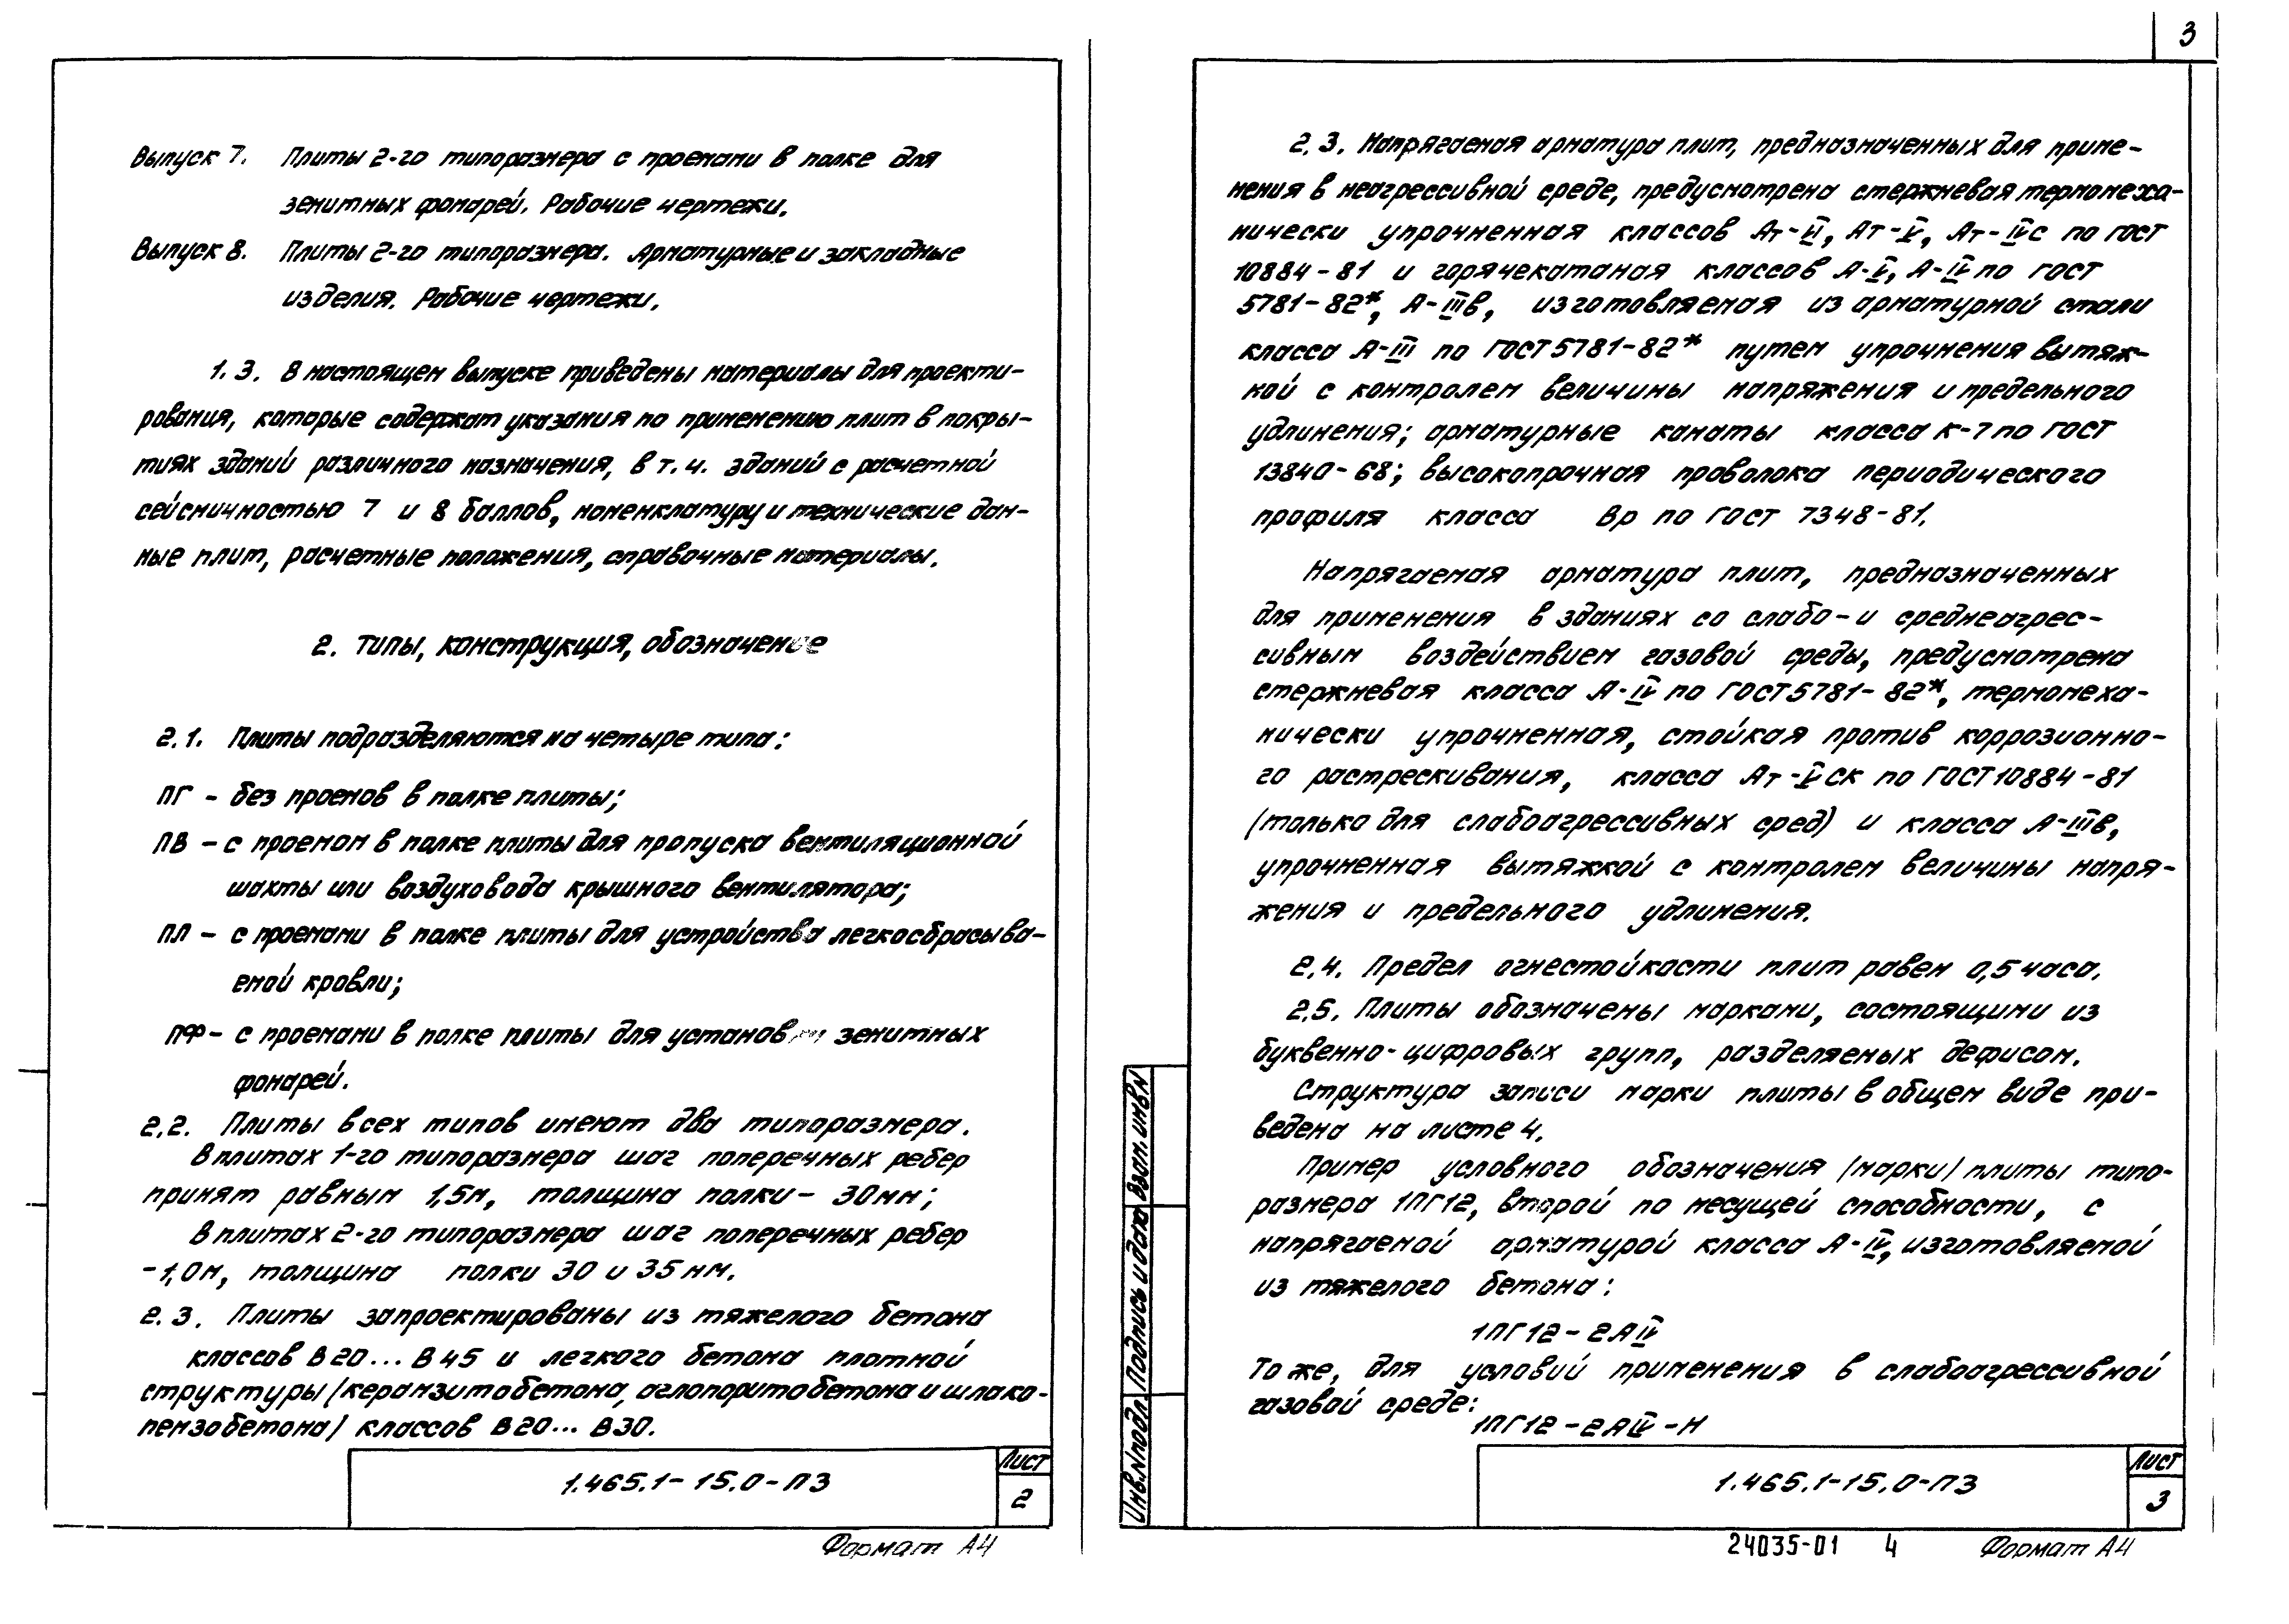 Выпуск 7. Плиты 2-го типоразмера с проемами в полке для
зенитных фонарей. Рабочие чертежи.
Выпуск 8. Плиты 2-го типоразмера. Арматурные и закладные
изделия. Рабочие чертежи.
1.3. В настоящем выпуске приведены материалы для проекти-
рования, которые содержат указания по применению плит в покры-
тиях зданий различного назначения, в т.ч. зданий с расчетной
сейсмичностью 7 и 8 баллов, номенклатуру и технические дан-
ные плит, расчетные положения, справочные материалы.
2. Типы, конструкция, обозначение
2.1. Плиты подразделяются на четыре типа:
ПГ - без проемов в полке плиты;
ПВ - с проемом в полке плиты для пропуска вентиляционной
шахты или воздуховода крышного вентилятора;
ПЛ - с проемами в полке плиты для устройства легкосбрасыва-
емой кровли;
ПФ - с проемами в полке плиты для установки зенитных
фонарей.
2.2. Плиты всех типов имеют два типоразмера.
В плитах 1-го типоразмера шаг поперечных ребер
принят равным 1,5м, толщина полки - 30мм;
В плитах 2-го типоразмера шаг поперечных ребер
-1,0м, толщина полки 30 и 35 мм.
2.3. Плиты запроектированы из тяжелого бетона
классов В20...В45 и легкого бетона плотной
структуры (керамзитобетона, аглопоритобетона и шлако-
пемзобетона) классов В20...В30.
1.465.1-15.0-ПЗ
Лист
2
Формат А4
3
2.3. Напрягаемая арматура плит, предназначенных для приме-
нения в неагрессивной среде, предусмотрена стержневая термомеха-
нически упрочненная классов Ат-VI, Ат-V, Ат-IVС по ГОСТ
10884-81 и горячекатаная классов А-V, А-IV по ГОСТ
5781-82*, А-IIIв, изготовляемая из арматурной стали
класса А-III по ГОСТ 5781-82* путем упрочнения вытяж-
кой с контролем величины напряжения и предельного
удлинения; арматурные канаты класса К-7 по ГОСТ
13840-68; высокопрочная проволока периодического
профиля класса Вр по ГОСТ 7348-81.
Напрягаемая арматура плит, предназначенных
для применения в зданиях со слабо- и среднеагрес-
сивным воздействием газовой среды, предусмотрена
стержневая класса А-IV по ГОСТ 5781-82*, термомеха-
нически упрочненная, стойкая против коррозионно-
го растрескивания, класса Ат-VСК по ГОСТ 10884-81
(только для слабоагрессивных сред) и класса А-IIIв,
упрочненная вытяжкой с контролем величины напря-
жения и предельного удлинения.
2.4. Предел огнестойкости плит равен 0,5 часа.
2.5. Плиты обозначены марками, состоящими из
буквенно-цифровых групп, разделяемых дефисом.
Структура записи марки плиты в общем виде при-
ведена на листе 4.
Пример условного обозначения (марки) плиты типо-
размера 1ПГ12, второй по несущей способности, с
напрягаемой арматурой класса А-IV, изготовляемой
из тяжелого бетона:
1ПГ12-2АIV
То же, для условий применения в слабоагрессивной
газовой среде:
1ПГ12-2АIV-Н
Инв.N подл. Подпись и дата Взам. инв N
1.465.1-15.0-ПЗ
Лист
3
24035-01 4 Формат А4